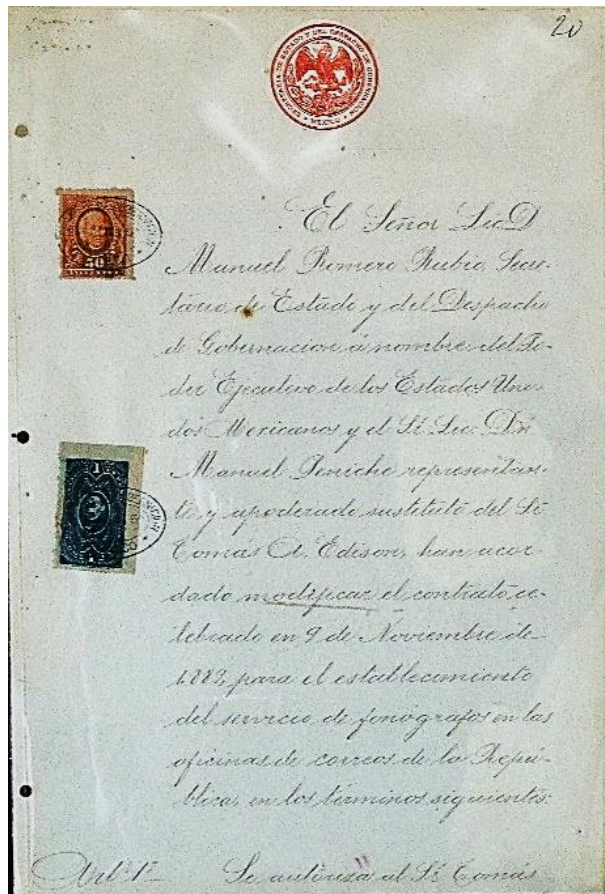 20
SECRETARIA DE ESTADO Y DEL DESPACHO DE GOBERNACION
MEXICO
El Señor Lic D
Manuel Romero Rubio, Secre-
tario de Estado y del Despacho
de Gobernacion á nombre del Po-
der Ejecutivo de los Estados Uni-
dos Mexicanos y el Sr Lic Dn
50
Manuel Peniche representan-
te y apoderado sustituto del Sr
1
Tomás A. Edison, han acor-
dado modificar el contrato ce-
lebrado en 9 de Noviembre de
para el establecimiento
del servicio de fonografos en las
oficinas de correos de la Repú-
blica, en los términos siguientes:
Art. 1º Se autoriza al Sr Tomás